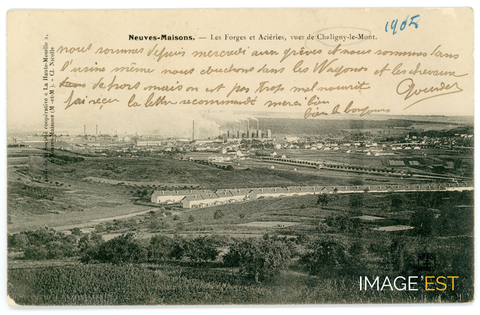 Neuves-Maisons. — Les Forges et Aciéries, vues de Chaligny-le-Mont.
1905
nous sommes depuis mercredi aux grèves et nous sommes dans
l'usine même nous couchons dans les Wagons et les chevaux
dehors mais on est pas trop mal nourrit
j'ai reçu la lettre recommandé merci bien
bien le bonjour
coopérative « La Haute-Moselle ».
Neuves-Maisons (M.-et-M.). — Cl. Nicolle
IMAGE'EST